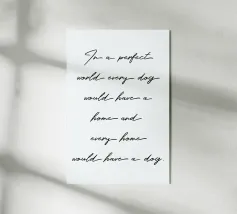 In a perfect
world every dog
would have a
home and
every home
would have a dog.